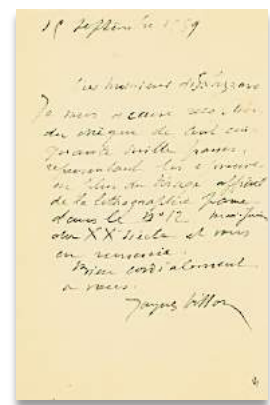 15 Septembre 1959
Cher Monsieur di San Lazzaro
Je vous accuse réception
du chèque de cent cin-
quante mille francs,
représentant les épreuves
en plus du tirage afférent
de la lithographie
dans le N° 12 mai-juin
du XXe Siècle et vous
en remercie.
Bien cordialement
à vous.
Jacques Villon